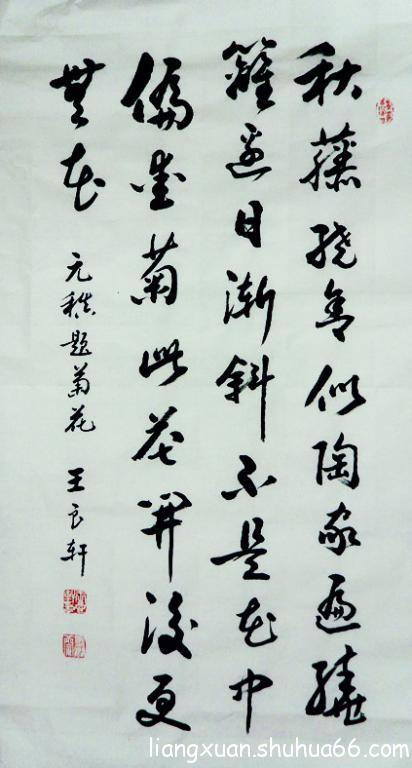 秋藤繞舍似陶家遍繞
籬邊日漸斜不是花中
偏愛菊此花開後更
無花
元稹題菊花 王良轩
liangxuan.shuhua66.com